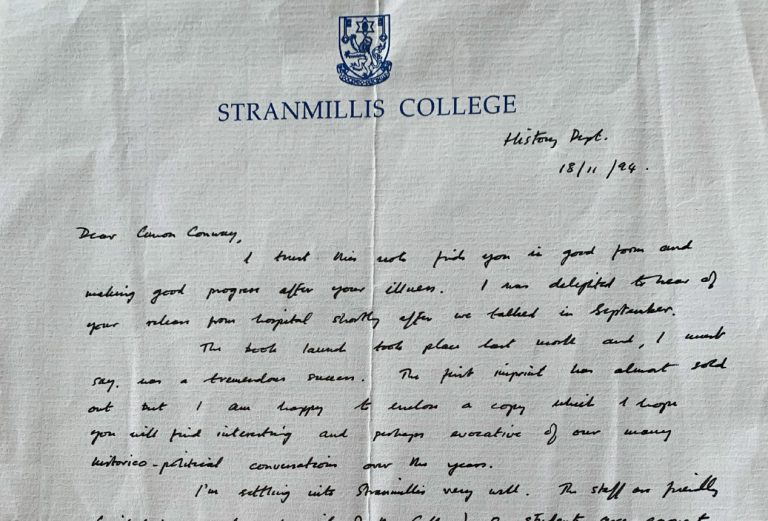 STRANMILLIS COLLEGE
History Dept.
18/11/94.
Dear Canon Conway,
I trust this note finds you in good form and
making good progress after your illness. I was delighted to hear of
your release from hospital shortly after we talked in September.
The book launch took place last week and, I must
say, was a tremendous success. The first imprint has almost sold
out but I am happy to enclose a copy which I hope
you will find interesting and perhaps evocative of our many
historico-political conversations over the years.
I'm settling into Stranmillis very well. The staff are friendly